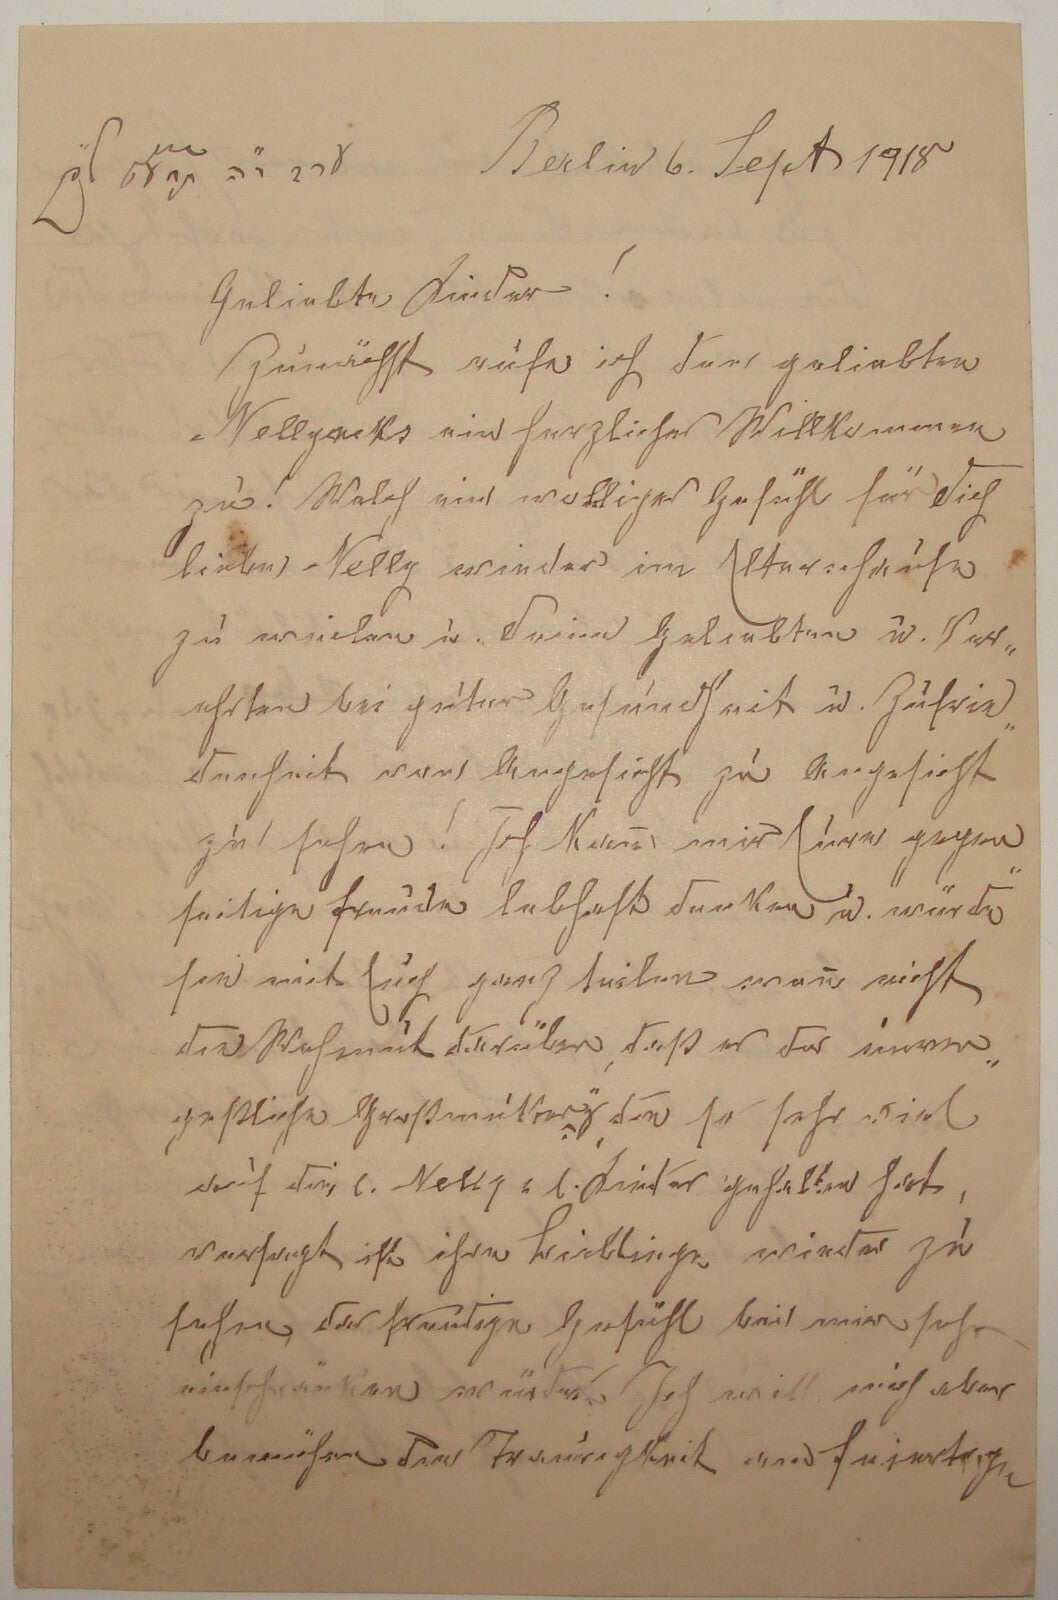 ערב ר״ה תרע״ט לפ״ק Berlin 6. Sept 1918
Geliebte Kinder!
Zunächst rufe ich den geliebten
Nellyacks ein herzliches Willkommen
zu! Welch ein wolliges Gefühl für Dich
liebes Nelly wieder im Elternhause
zu weilen u. Deine Geliebten u. Ver„
ehrten bei guter Gesundheit u. Zufrie„
denheit von Angesicht zu Angesicht
zu sehen! Ich kann mir Eure gegen„
seitige Freude lebhaft denken u. würde
sie mit Euch ganz teilen wenn nicht
die Wehmut darüber, daß es der unver„
geßliche Großmutter die so sehr viel
auf die l. Nelly u. l. Kinder gehalten hat,
versagt ist ihre Lieblinge wieder zu
sehen, das freudige Gefühl bei mir sehr
einschränken würde. Ich will mich aber
bemühen die Traurigkeit am Feiertage